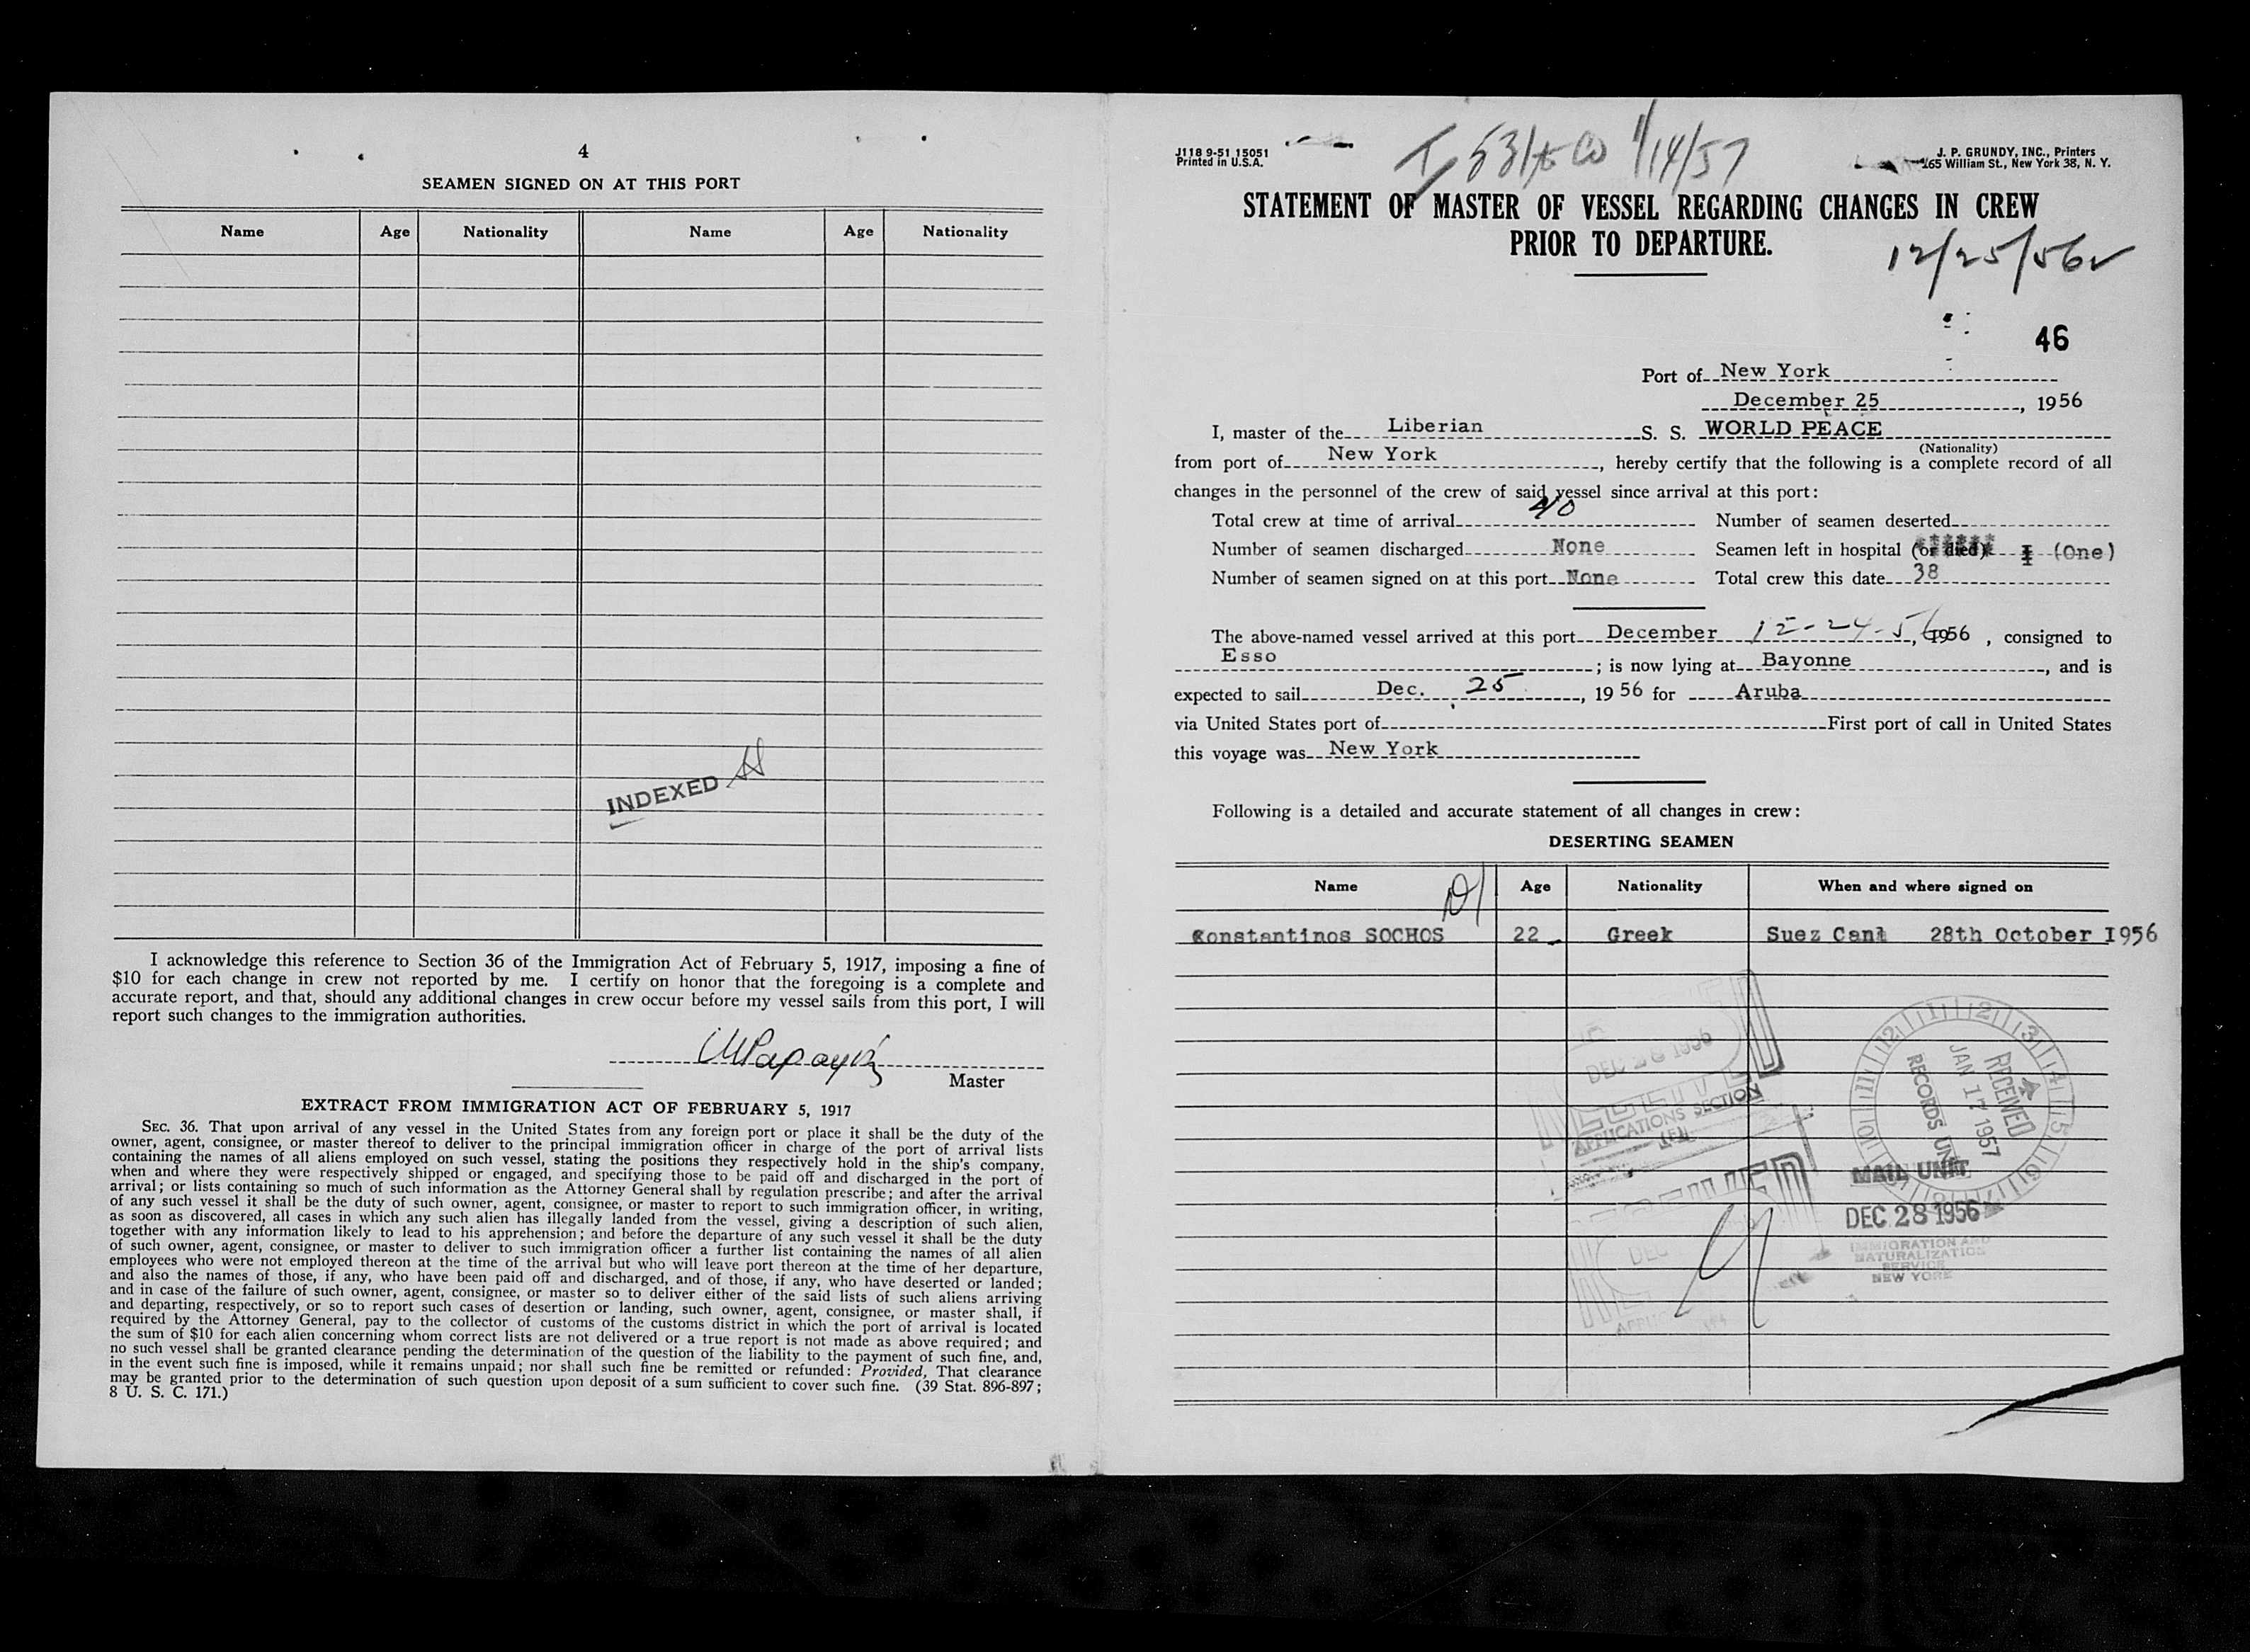 4
SEAMEN SIGNED ON AT THIS PORT
Name Age Nationality Name Age Nationality
INDEXED
I acknowledge this reference to Section 36 of the Immigration Act of February 5, 1917, imposing a fine of
$10 for each change in crew not reported by me. I certify on honor that the foregoing is a complete and
accurate report, and that, should any additional changes in crew occur before my vessel sails from this port, I will
report such changes to the immigration authorities.
Master
EXTRACT FROM IMMIGRATION ACT OF FEBRUARY 5, 1917
SEC. 36. That upon arrival of any vessel in the United States from any foreign port or place it shall be the duty of the
owner, agent, consignee, or master thereof to deliver to the principal immigration officer in charge of the port of arrival lists
containing the names of all aliens employed on such vessel, stating the positions they respectively hold in the ship's company,
when and where they were respectively shipped or engaged, and specifying those to be paid off and discharged in the port of
arrival; or lists containing so much of such information as the Attorney General shall by regulation prescribe; and after the arrival
of any such vessel it shall be the duty of such owner, agent, consignee, or master to report to such immigration officer, in writing,
as soon as discovered, all cases in which any such alien has illegally landed from the vessel, giving a description of such alien,
together with any information likely to lead to his apprehension; and before the departure of any such vessel it shall be the duty
of such owner, agent, consignee, or master to deliver to such immigration officer a further list containing the names of all alien
employees who were not employed thereon at the time of the arrival but who will leave port thereon at the time of her departure,
and also the names of those, if any, who have been paid off and discharged, and of those, if any, who have deserted or landed;
and in case of the failure of such owner, agent, consignee, or master so to deliver either of the said lists of such aliens arriving
and departing, respectively, or so to report such cases of desertion or landing, such owner, agent, consignee, or master shall, if
required by the Attorney General, pay to the collector of customs of the customs district in which the port of arrival is located
the sum of $10 for each alien concerning whom correct lists are not delivered or a true report is not made as above required; and
no such vessel shall be granted clearance pending the determination of the question of the liability to the payment of such fine, and,
in the event such fine is imposed, while it remains unpaid; nor shall such fine be remitted or refunded: Provided, That clearance
may be granted prior to the determination of such question upon deposit of a sum sufficient to cover such fine. (39 Stat. 896-897;
8 U. S. C. 171.)
J118 9-51 15051
Printed in U.S.A.
1/14/57
J. P. GRUNDY, INC., Printers
165 William St., New York 38, N. Y.
STATEMENT OF MASTER OF VESSEL REGARDING CHANGES IN CREW
PRIOR TO DEPARTURE.
12/25/56
46
Port of New York
December 25, 1956
I, master of the Liberian S. S. WORLD PEACE
(Nationality)
from port of New York, hereby certify that the following is a complete record of all
changes in the personnel of the crew of said vessel since arrival at this port:
Total crew at time of arrival 40 Number of seamen deserted
Number of seamen discharged None Seamen left in hospital (or died) I (One)
Number of seamen signed on at this port None Total crew this date 38
The above-named vessel arrived at this port December 12-24-56, 1956, consigned to
Esso; is now lying at Bayonne, and is
expected to sail Dec. 25, 1956 for Aruba
via United States port of First port of call in United States
this voyage was New York
Following is a detailed and accurate statement of all changes in crew:
DESERTING SEAMEN
Name Age Nationality When and where signed on
Konstantinos SOCHOS 22 Greek Suez Canl 28th October 1956
DEC 26 1956
APPLICATIONS SECTION
12 1 2 3 4 5 6 7 8 10 11
RECEIVED
JAN 17 1957
RECORDS UNIT
MAIL UNIT
DEC 28 1956
IMMIGRATION AND
NATURALIZATION
SERVICE
NEW YORK
RECEIVED
DEC